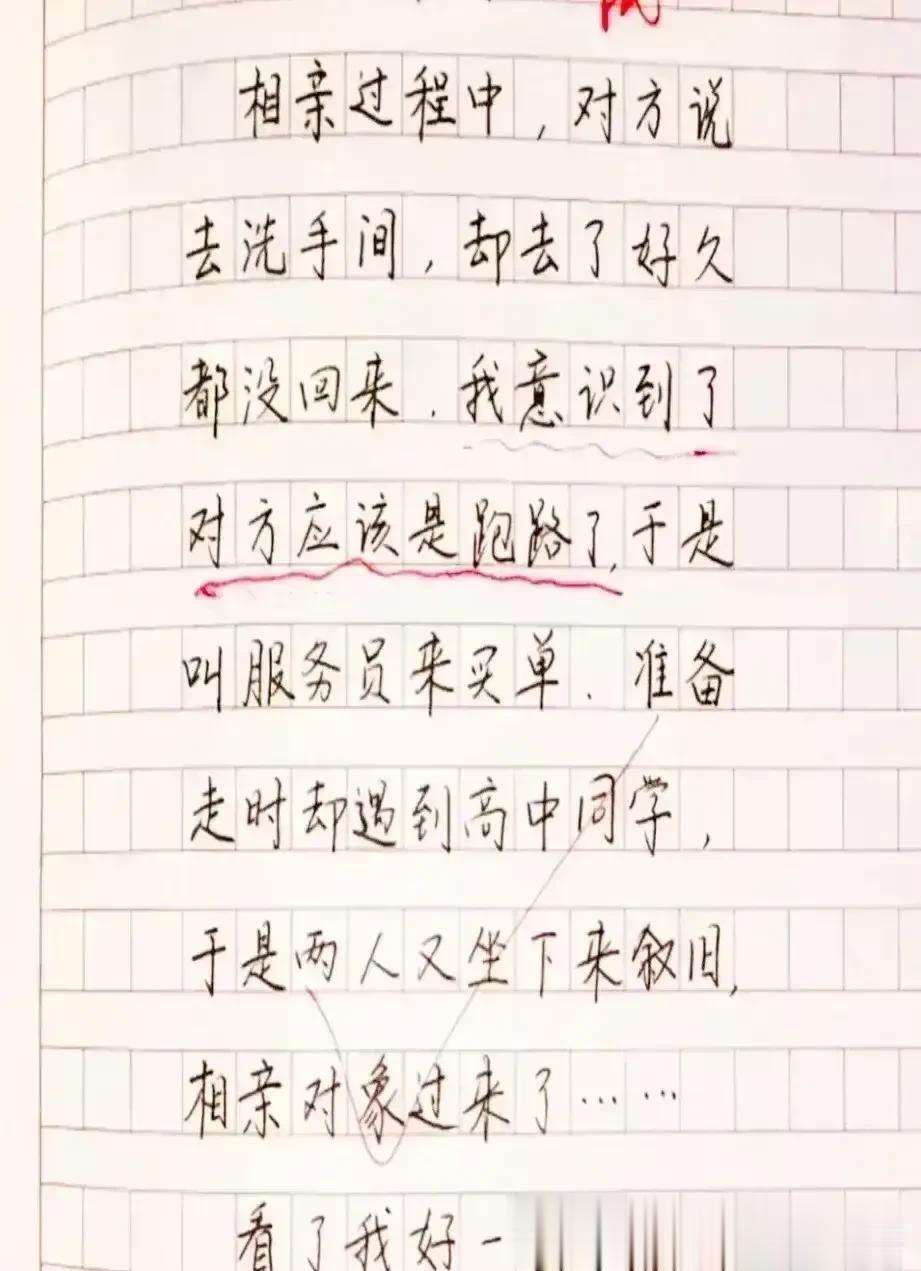 相亲过程中，对方说
去洗手间，却去了好久
都没回来．我意识到了
对方应该是跑路了，于是
叫服务员来买单．准备
走时却遇到高中同学，
于是两人又坐下来叙旧，
相亲对象过来了……
看了我好一